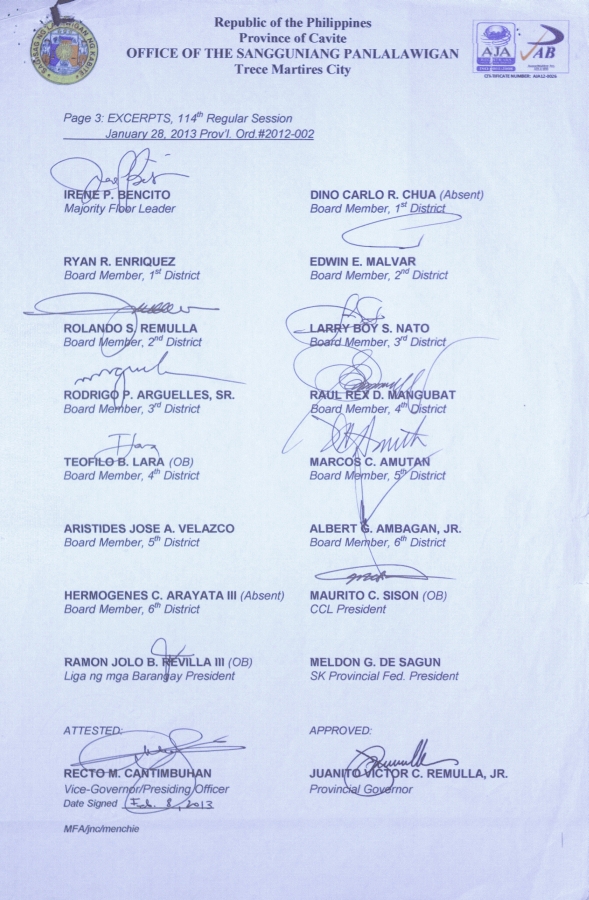 Republic of the Philippines
Province of Cavite
OFFICE OF THE SANGGUNIANG PANLALAWIGAN
Trece Martires City
AJA
PAB
CERTIFICATE NUMBER: AJA12-0026
Page 3: EXCERPTS, 114th Regular Session
January 28, 2013 Prov'l. Ord.#2012-002
IRENE P. BENCITO
Majority Floor Leader
DINO CARLO R. CHUA (Absent)
Board Member, 1st District
RYAN R. ENRIQUEZ
Board Member, 1st District
EDWIN E. MALVAR
Board Member, 2nd District
ROLANDO S. REMULLA
Board Member, 2nd District
LARRY BOY S. NATO
Board Member, 3rd District
RODRIGO P. ARGUELLES, SR.
Board Member, 3rd District
RAUL REX D. MANGUBAT
Board Member, 4th District
TEOFILO B. LARA (OB)
Board Member, 4th District
MARCOS C. AMUTAN
Board Member, 5th District
ARISTIDES JOSE A. VELAZCO
Board Member, 5th District
ALBERT G. AMBAGAN, JR.
Board Member, 6th District
HERMOGENES C. ARAYATA III (Absent)
Board Member, 6th District
MAURITO C. SISON (OB)
CCL President
RAMON JOLO B. REVILLA III (OB)
Liga ng mga Barangay President
MELDON G. DE SAGUN
SK Provincial Fed. President
ATTESTED:
RECTO M. CANTIMBUHAN
Vice-Governor/Presiding Officer
Date Signed Feb. 8, 2013
APPROVED:
JUANITO VICTOR C. REMULLA, JR.
Provincial Governor
MFA/jnc/menchie